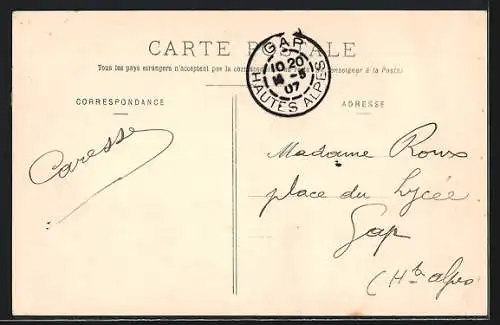 CARTE POSTALE
Tous les pays étrangers n'acceptent pas la correspondance
nseigner à la Poste)
GAP
10 20
14 -5
07
HAUTES ALPES
CORRESPONDANCE
ADRESSE
Caresse
Madame Roux
place du Lycée
Gap
(Htes alpes